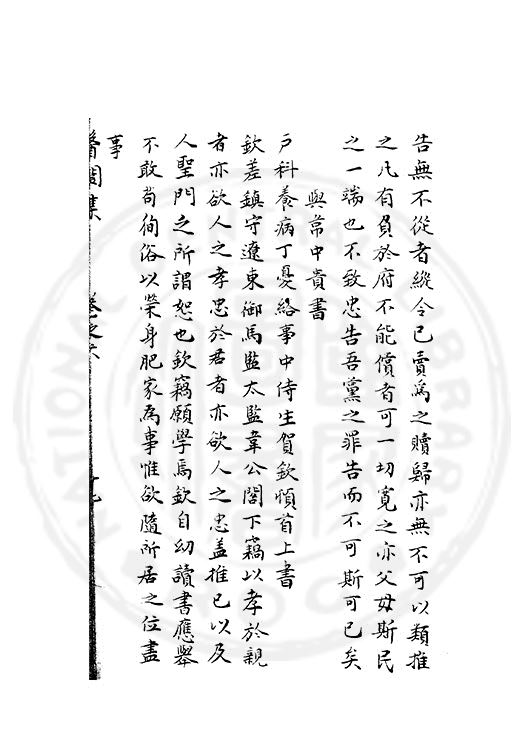 告無不從者縱令已賣為之贖歸亦無不可以類推
之凡有負於府不能償者可一切寬之亦父母斯民
之一端也不致忠告吾黨之罪告而不可斯可已矣
與常中貴書
戶科養病丁憂給事中侍生賀欽頓首上書
欽差鎮守遼東御馬監太監韋公閤下竊以孝於親
者亦欲人之孝忠於君者亦欲人之忠蓋推己以及
人聖門之所謂恕也欽竊願學焉欽自幼讀書應舉
不敢苟徇俗以榮身肥家為事惟欲隨所居之位盡
事
醫閭集 卷之六